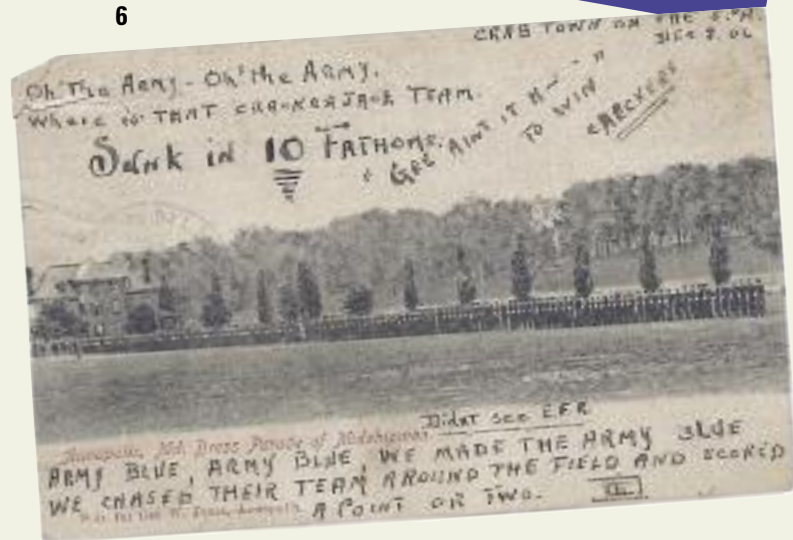 6
CRAB TOWN ON THE
DEC 8. 06
Oh' The Army - Oh' the Army.
Where is THAT CRACKERJACK TEAM.
Sunk in 10 FATHOMS.
" GEE AIN'T IT H--- "
TO WIN
Didnt see E.F.R
Annapolis, Md. Dress Parade of Midshipmen
ARMY BLUE, ARMY BLUE, WE MADE THE ARMY BLUE
WE CHASED THEIR TEAM AROUND THE FIELD AND SCORED
A POINT OR TWO.